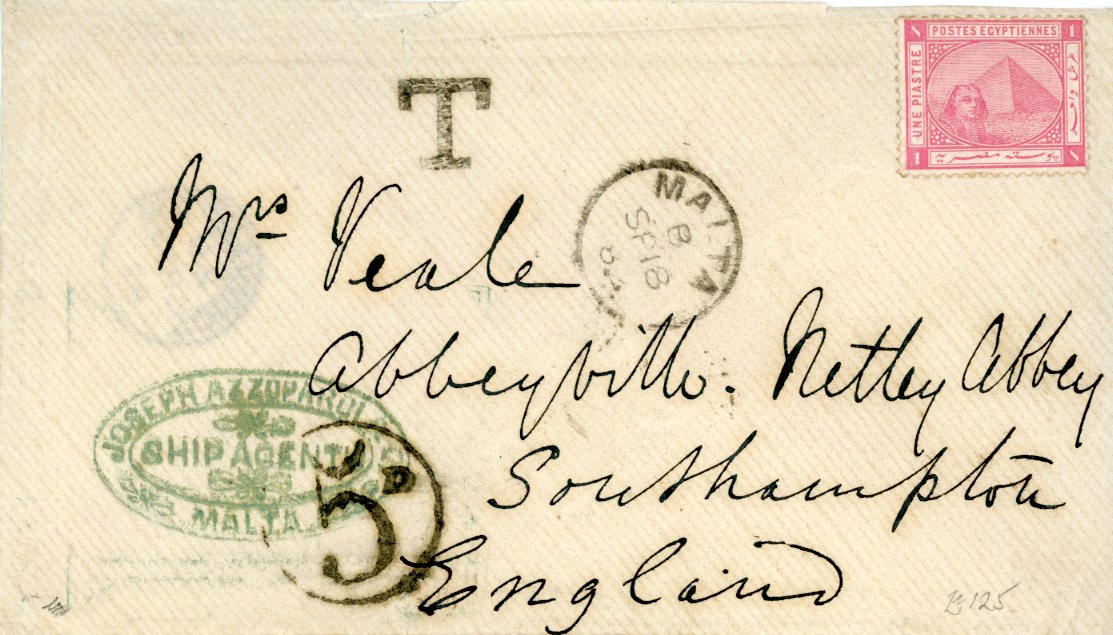 POSTES EGYPTIENNES
UNE PIASTRE
1
1
T
MALTA
B
SP 18
Mrs Veale
Abbeyville. Netley Abbey
Southampton
England
JOSEPH AZZOPARDI
SHIP AGENTS
MALTA
5D
125